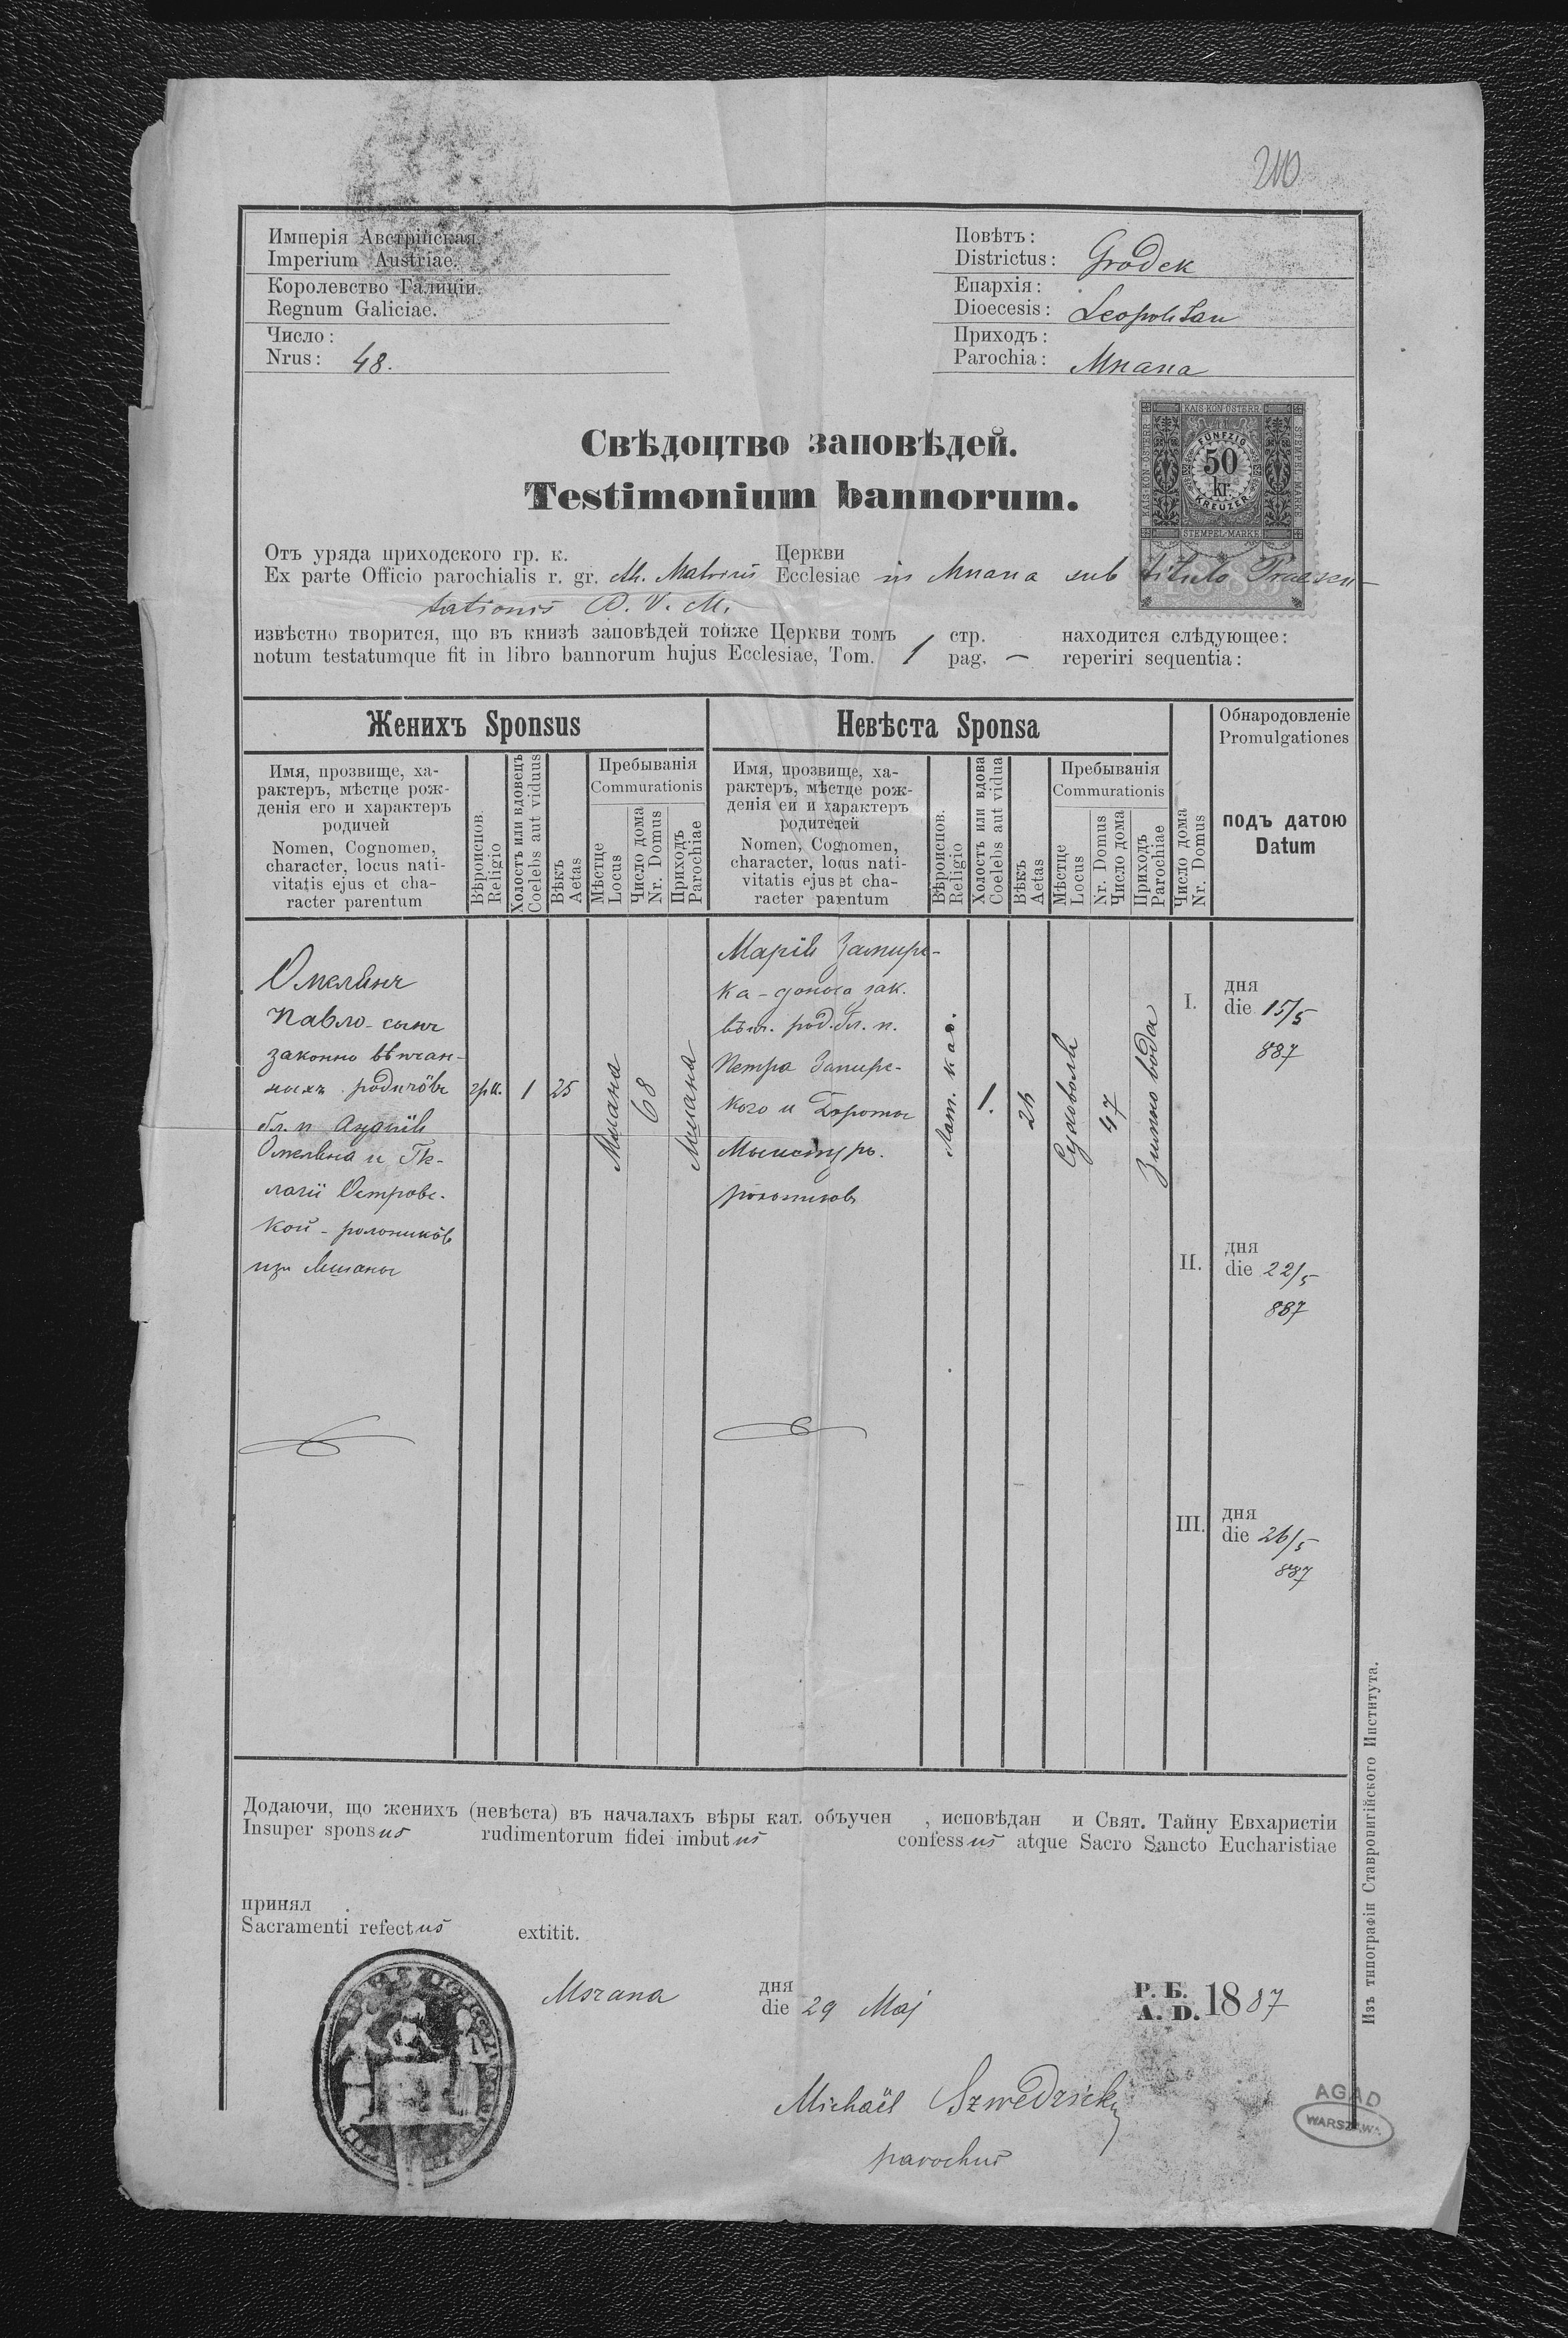 210
Имперія Австрійская.
Imperium Austriae.
Королевство Галиціи.
Regnum Galiciae.
Число:
Nrus: 48.
Повѣтъ:
Districtus: Grodek
Епархія:
Dioecesis: Leopolitan
Приходъ:
Parochia: Мшана
KAIS·KÖN·ÖSTERR.
FÜNFZIG
50
kr.
KREUZER
STEMPEL-MARKE
1885
Свѣдоцтво заповѣдей.
Testimonium bannorum.
Отъ уряда приходского гр. к. Церкви
Ex parte Officio parochialis r. gr. ch. Matricis Ecclesiae in Мшана sub titulo Praesen-
tationis B. V. M.
извѣстно творится, що въ книзѣ заповѣдей тойже Церкви томъ стр. находится слѣдующее:
notum testatumque fit in libro bannorum hujus Ecclesiae, Tom. 1 pag. — reperiri sequentia:
Женихъ Sponsus
Невѣста Sponsa
Обнародовленіе
Promulgationes
Имя, прозвище, ха-
рактеръ, мѣстце рож-
денія его и характеръ
родичей
Nomen, Cognomen,
character, locus nati-
vitatis ejus et cha-
racter parentum
Вѣроиспов.
Religio
Холостъ или вдовецъ
Coelebs aut viduus
Вѣкъ
Aetas
Пребыванія
Commurationis
Мѣстце
Locus
Число дома
Nr. Domus
Приходъ
Parochiae
Имя, прозвище, ха-
рактеръ, мѣстце рож-
денія еи и характеръ
родителей
Nomen, Cognomen,
character, locus nati-
vitatis ejus et cha-
racter parentum
Вѣроиспов.
Religio
Холостъ или вдова
Coelebs aut vidua
Вѣкъ
Aetas
Пребыванія
Commurationis
Мѣстце
Locus
Nr. Domus
Число дома
Приходъ
Parochiae
Число дома
Nr. Domus
подъ датою
Datum
Омелянъ
Павло сынъ
законно вѣнчан-
ныхъ родичôвъ
бл. п
Омеляна и Пе-
лагіи Островс-
кой - рольникôвъ
изъ Мшаны
гр.к.
1
25
Мшана
68
Мшана
Марія Запирс-
ка - донька зак.
вѣн. род. бл. п.
Петра Запирс-
кого и Дороты
рольникôвъ
Лат. кат.
1.
24
Суховоля
47
Зимно вода
I.
дня
die 15/5
887
II.
дня
die 22/5
887
III.
дня
die 26/5
887
Додаючи, що женихъ (невѣста) въ началахъ вѣры кат. объучен , исповѣдан и Свят. Тайну Евхаристіи
Insuper sponsus rudimentorum fidei imbutus confessus atque Sacro Sancto Eucharistiae
принял
Sacramenti refectus extitit.
Mszana
дня
die 29 Maj
Р. Б.
A. D. 1887
Michaël Szwedzicky
parochus
AGAD
WARSZAWA
Изъ типографіи Ставропигійского Института.